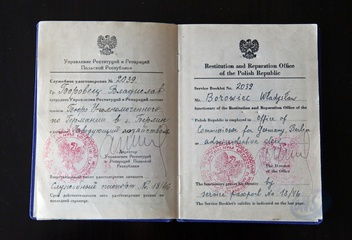 Управление Реституций и Репараций
Польской Республики
Служебное удостоверение № 2039
Гр. Боровец Владислав
сотрудник Управления Реституций и Репараций
Бюро Уполномоченного
по Германии в г. Берлин
Директор
Управления Реституций
и Репараций Польской
Республики
Служебный паспорт № 18/46
Restitution and Reparation Office
of the Polish Republic
Service Booklet No. 2039
Mr. Borowiec Władysław
functionary of the Restitution and Reparation Office of the
Polish Republic is employed in Office of
Commissioner for Germany Berlin
as administrative
The Director
of the Office
The functionary proves his identity by
service passport No 18/46
The Service Booklet's validity is indicated on the last page.